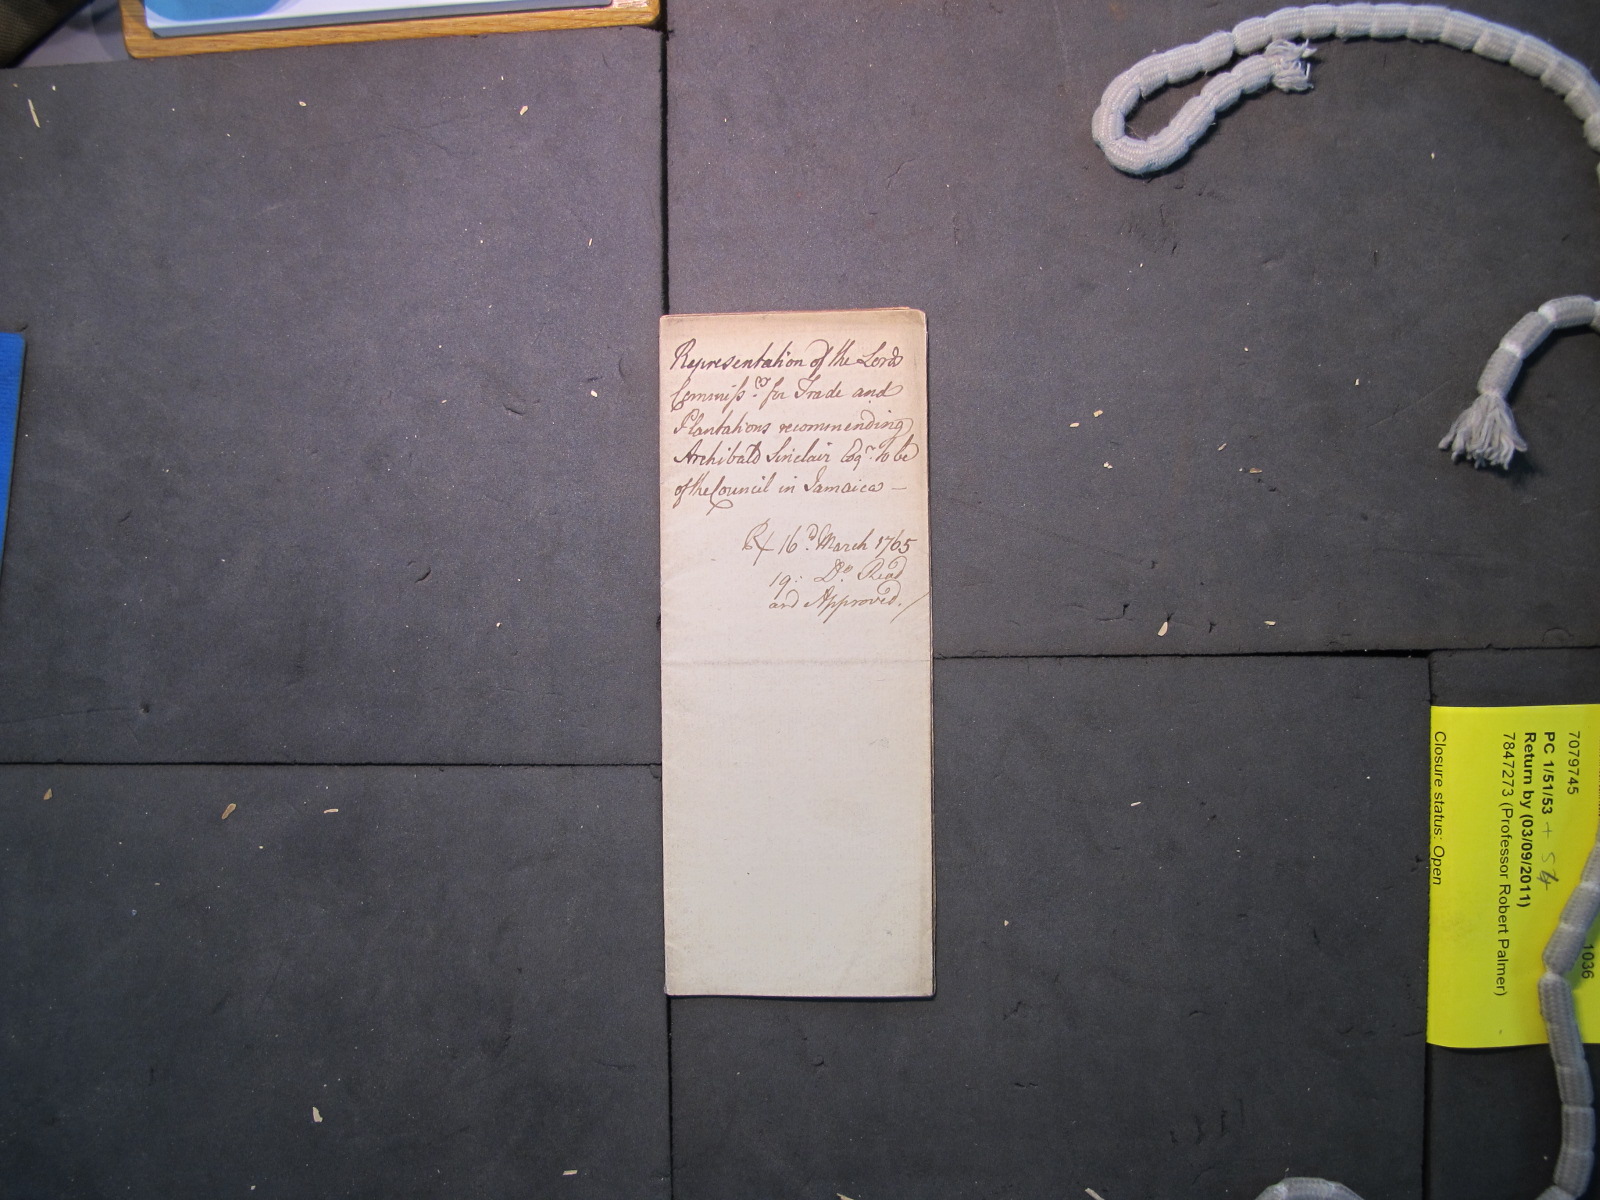 Representation of the Lords
Commissrs. for Trade and
Plantations recommending
Archibald Sinclair Esqr. to be
of the Council in Jamaica —
Rx 16d. March 1765
19: Do. Read
and Approved./
7079745
PC 1/51/53 + 54
Return by (03/09/2011)
7847273 (Professor Robert Palmer)
Closure status: Open
1036